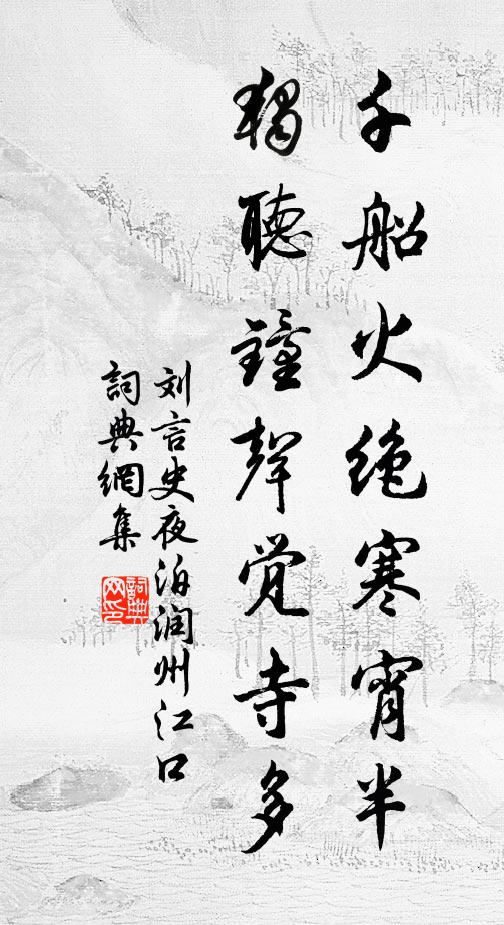 千船火绝寒宵半
独聽鐘聲觉寺多
刘言史夜泊润州江口
詞典網集